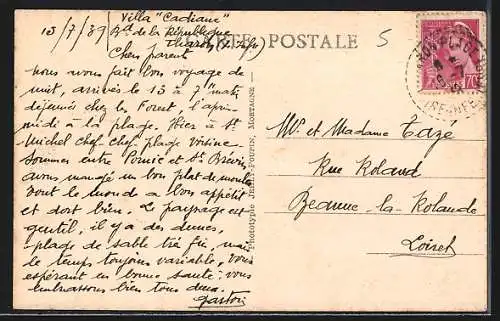 Villa "Cadiane"
13/7/39 Bd de la République
CARTE POSTALE
5
Chers parents
nous avons fait bon voyage de
nuit, arrivés le 13 à 7h mat.
déjeunés chez les Forest, l'après
midi à la plage. Hier à St
Michel chef-chef plage voisine
sommes entre Pornic et St Brévin,
avons mangé un bon plat de moules
tout le monde a bon appétit
et dort bien. Le paysage est
gentil, il y a des dunes,
plage de sable très fin, mais
le temps toujours variable, vous
espérant en bonne santé. vous
embrassons bien tous deux.
Gaston
Phototypie MONTAGNE
Mr. et Madame Taze
Rue Roland
Beaune-la-Rolande
Loiret
70c